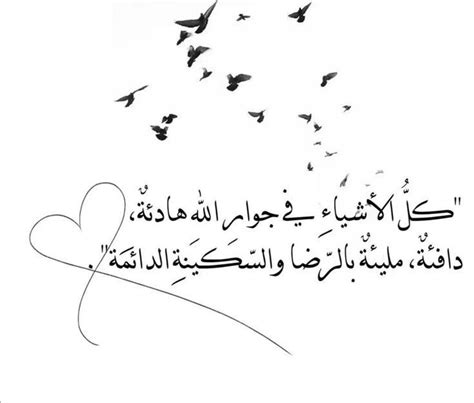 "كلُّ الأشياءِ في جوار الله هادئةٌ،
دافئةٌ، مليئةٌ بالرّضا والسّكَينَةِ الدائمَة".